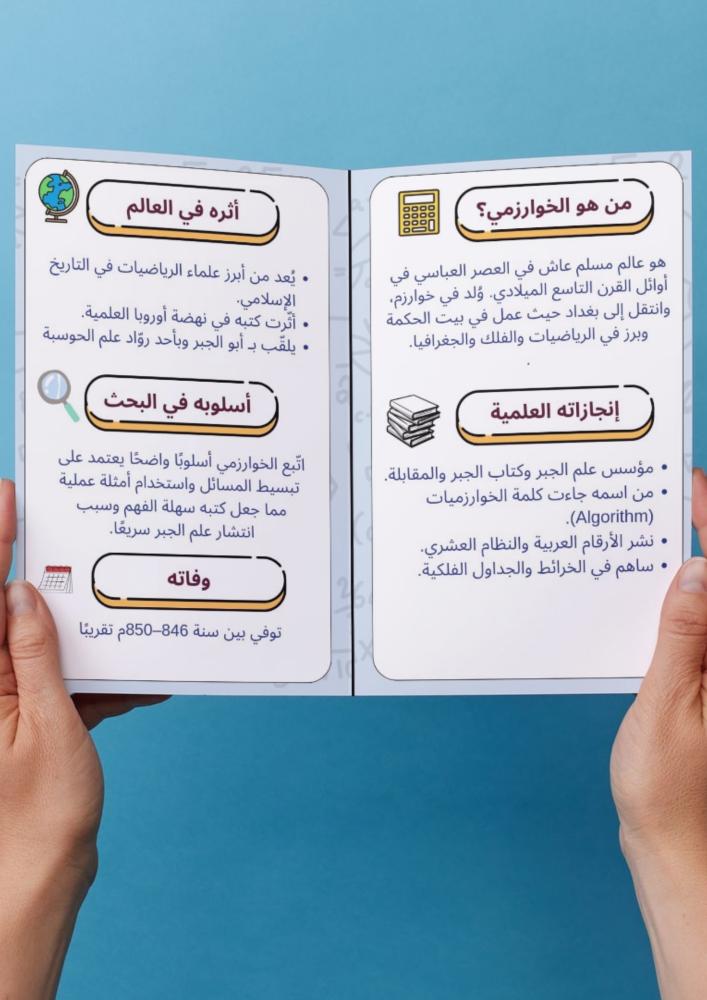 من هو الخوارزمي؟
هو عالم مسلم عاش في العصر العباسي في
أوائل القرن التاسع الميلادي. وُلد في خوارزم،
وانتقل إلى بغداد حيث عمل في بيت الحكمة
وبرز في الرياضيات والفلك والجغرافيا.
.
إنجازاته العلمية
• مؤسس علم الجبر وكتاب الجبر والمقابلة.
• من اسمه جاءت كلمة الخوارزميات
(Algorithm).
• نشر الأرقام العربية والنظام العشري.
• ساهم في الخرائط والجداول الفلكية.
أثره في العالم
• يُعد من أبرز علماء الرياضيات في التاريخ
الإسلامي.
• أثّرت كتبه في نهضة أوروبا العلمية.
• يلقّب بـ أبو الجبر وبأحد روّاد علم الحوسبة
أسلوبه في البحث
اتّبع الخوارزمي أسلوبًا واضحًا يعتمد على
تبسيط المسائل واستخدام أمثلة عملية
مما جعل كتبه سهلة الفهم وسبب
انتشار علم الجبر سريعًا.
وفاته
توفي بين سنة 846–850م تقريبًا